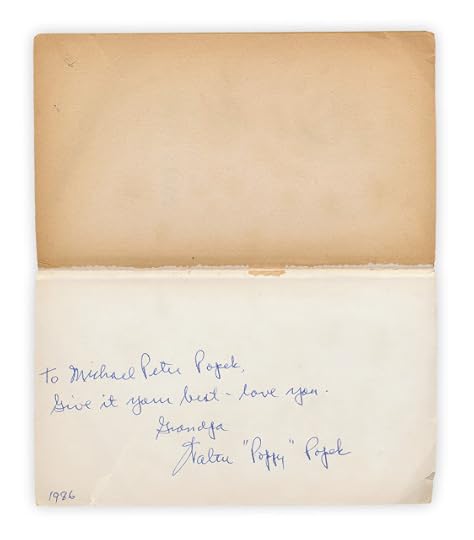 To Michael Peter Popek,
Give it your best - love you.
Grandpa
Walter "Poppy" Popek
1986